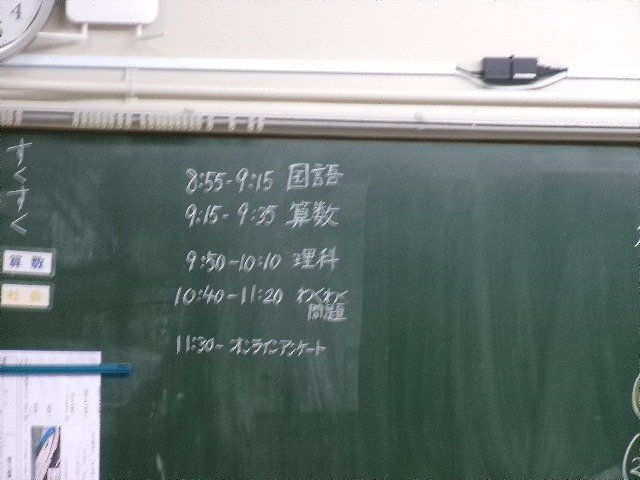 すくすく
算数
社会
8:55-9:15 国語
9:15-9:35 算数
9:50-10:10 理科
10:40-11:20 わくわく
問題
11:30- オンラインアンケート
4
2